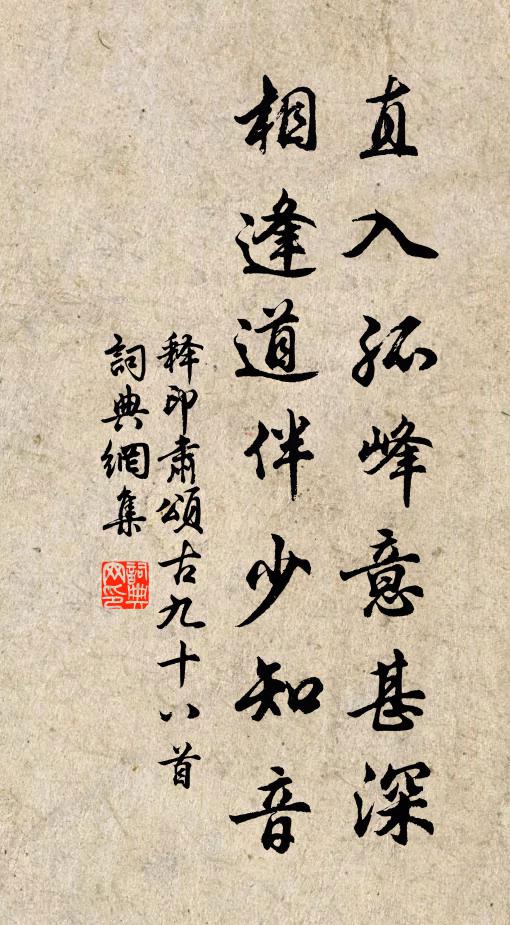 直入孤峰意甚深
相逢道伴少知音
释印肃頌古九十八首
詞典網集
詞典
网印